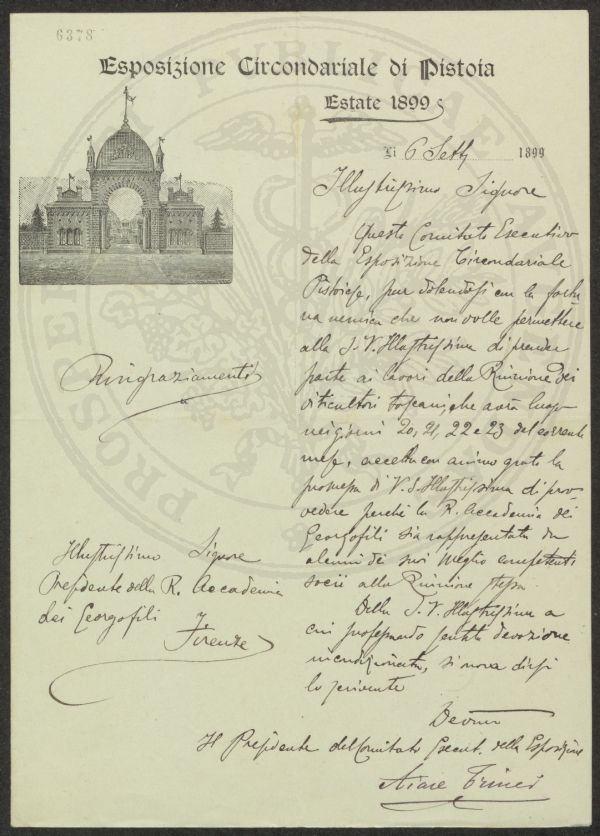 6378
Esposizione Circondariale di Pistoia
Estate 1899
Li 6 Sett 1899
Illustrissimo Signore
Questo Comitato Esecutivo
della Esposizione Circondariale
Pistoiese, pur dolendosi con la fortu
na nemica che non volle permettere
alla S. V. Illustrissima di prender
parte ai lavori della Riunione dei
viticultori toscani, che avrà luogo
nei giorni 20, 21, 22 e 23 del corrente
mese, accetta con animo grato la
promessa di V. S. Illustrissima di prov
vedere perchè la R. Accademia dei
Georgofili sia rappresentata da
alcuni dei suoi meglio competenti
socii alla Riunione stessa
Della S. V. Illustrissima a
cui professando sentita devozione
incondizionata, si onora dirsi
lo scrivente
Devmo
Il Presidente del Comitato Esecut. della Esposizione
Trinci
Ringraziamenti
Illustrissimo Signore
Presidente della R. Accademia
dei Georgofili
Firenze